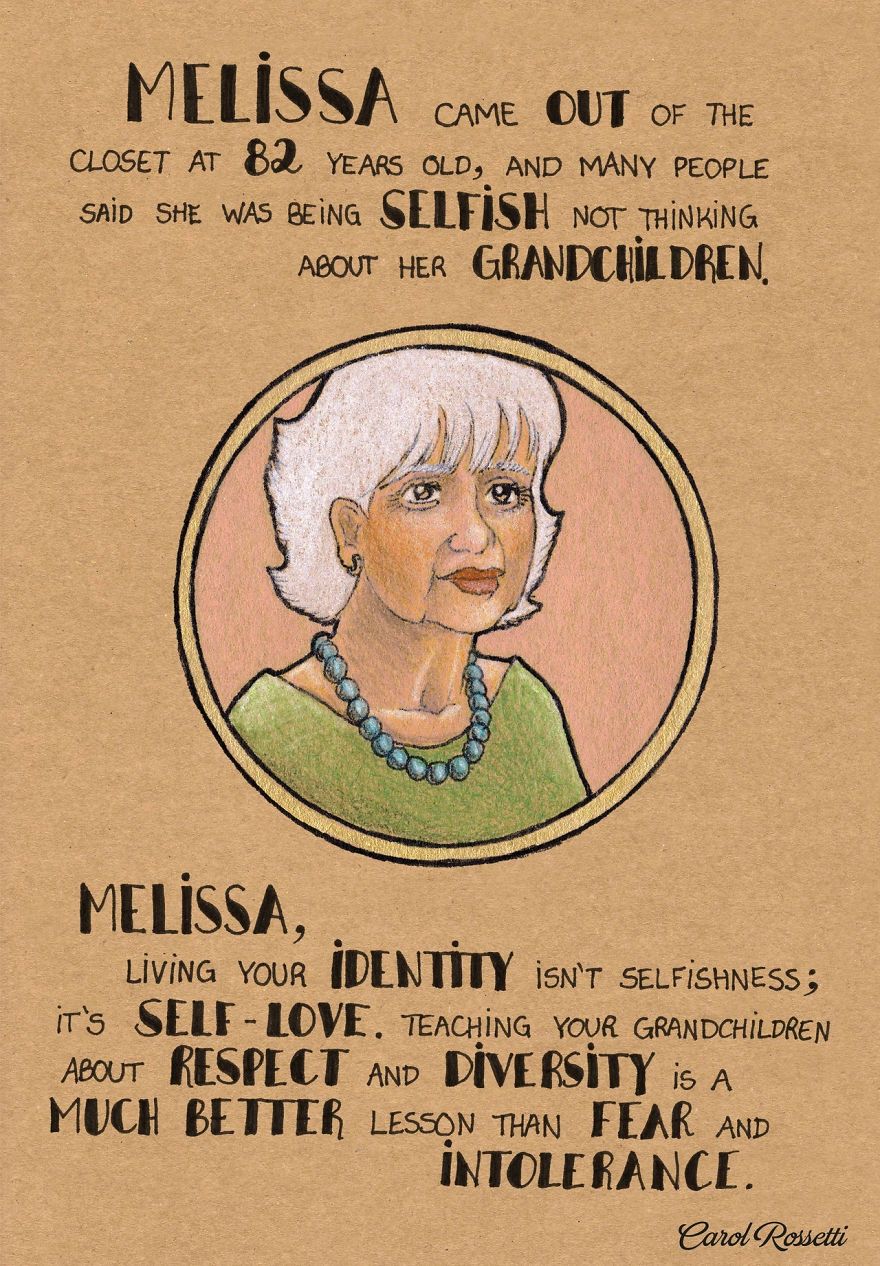 MELISSA CAME OUT OF THE
CLOSET AT 82 YEARS OLD, AND MANY PEOPLE
SAID SHE WAS BEING SELFISH NOT THINKING
ABOUT HER GRANDCHILDREN.
MELISSA,
LIVING YOUR IDENTITY ISN'T SELFISHNESS;
IT'S SELF-LOVE. TEACHING YOUR GRANDCHILDREN
ABOUT RESPECT AND DIVERSITY IS A
MUCH BETTER LESSON THAN FEAR AND
INTOLERANCE.
Carol Rossetti